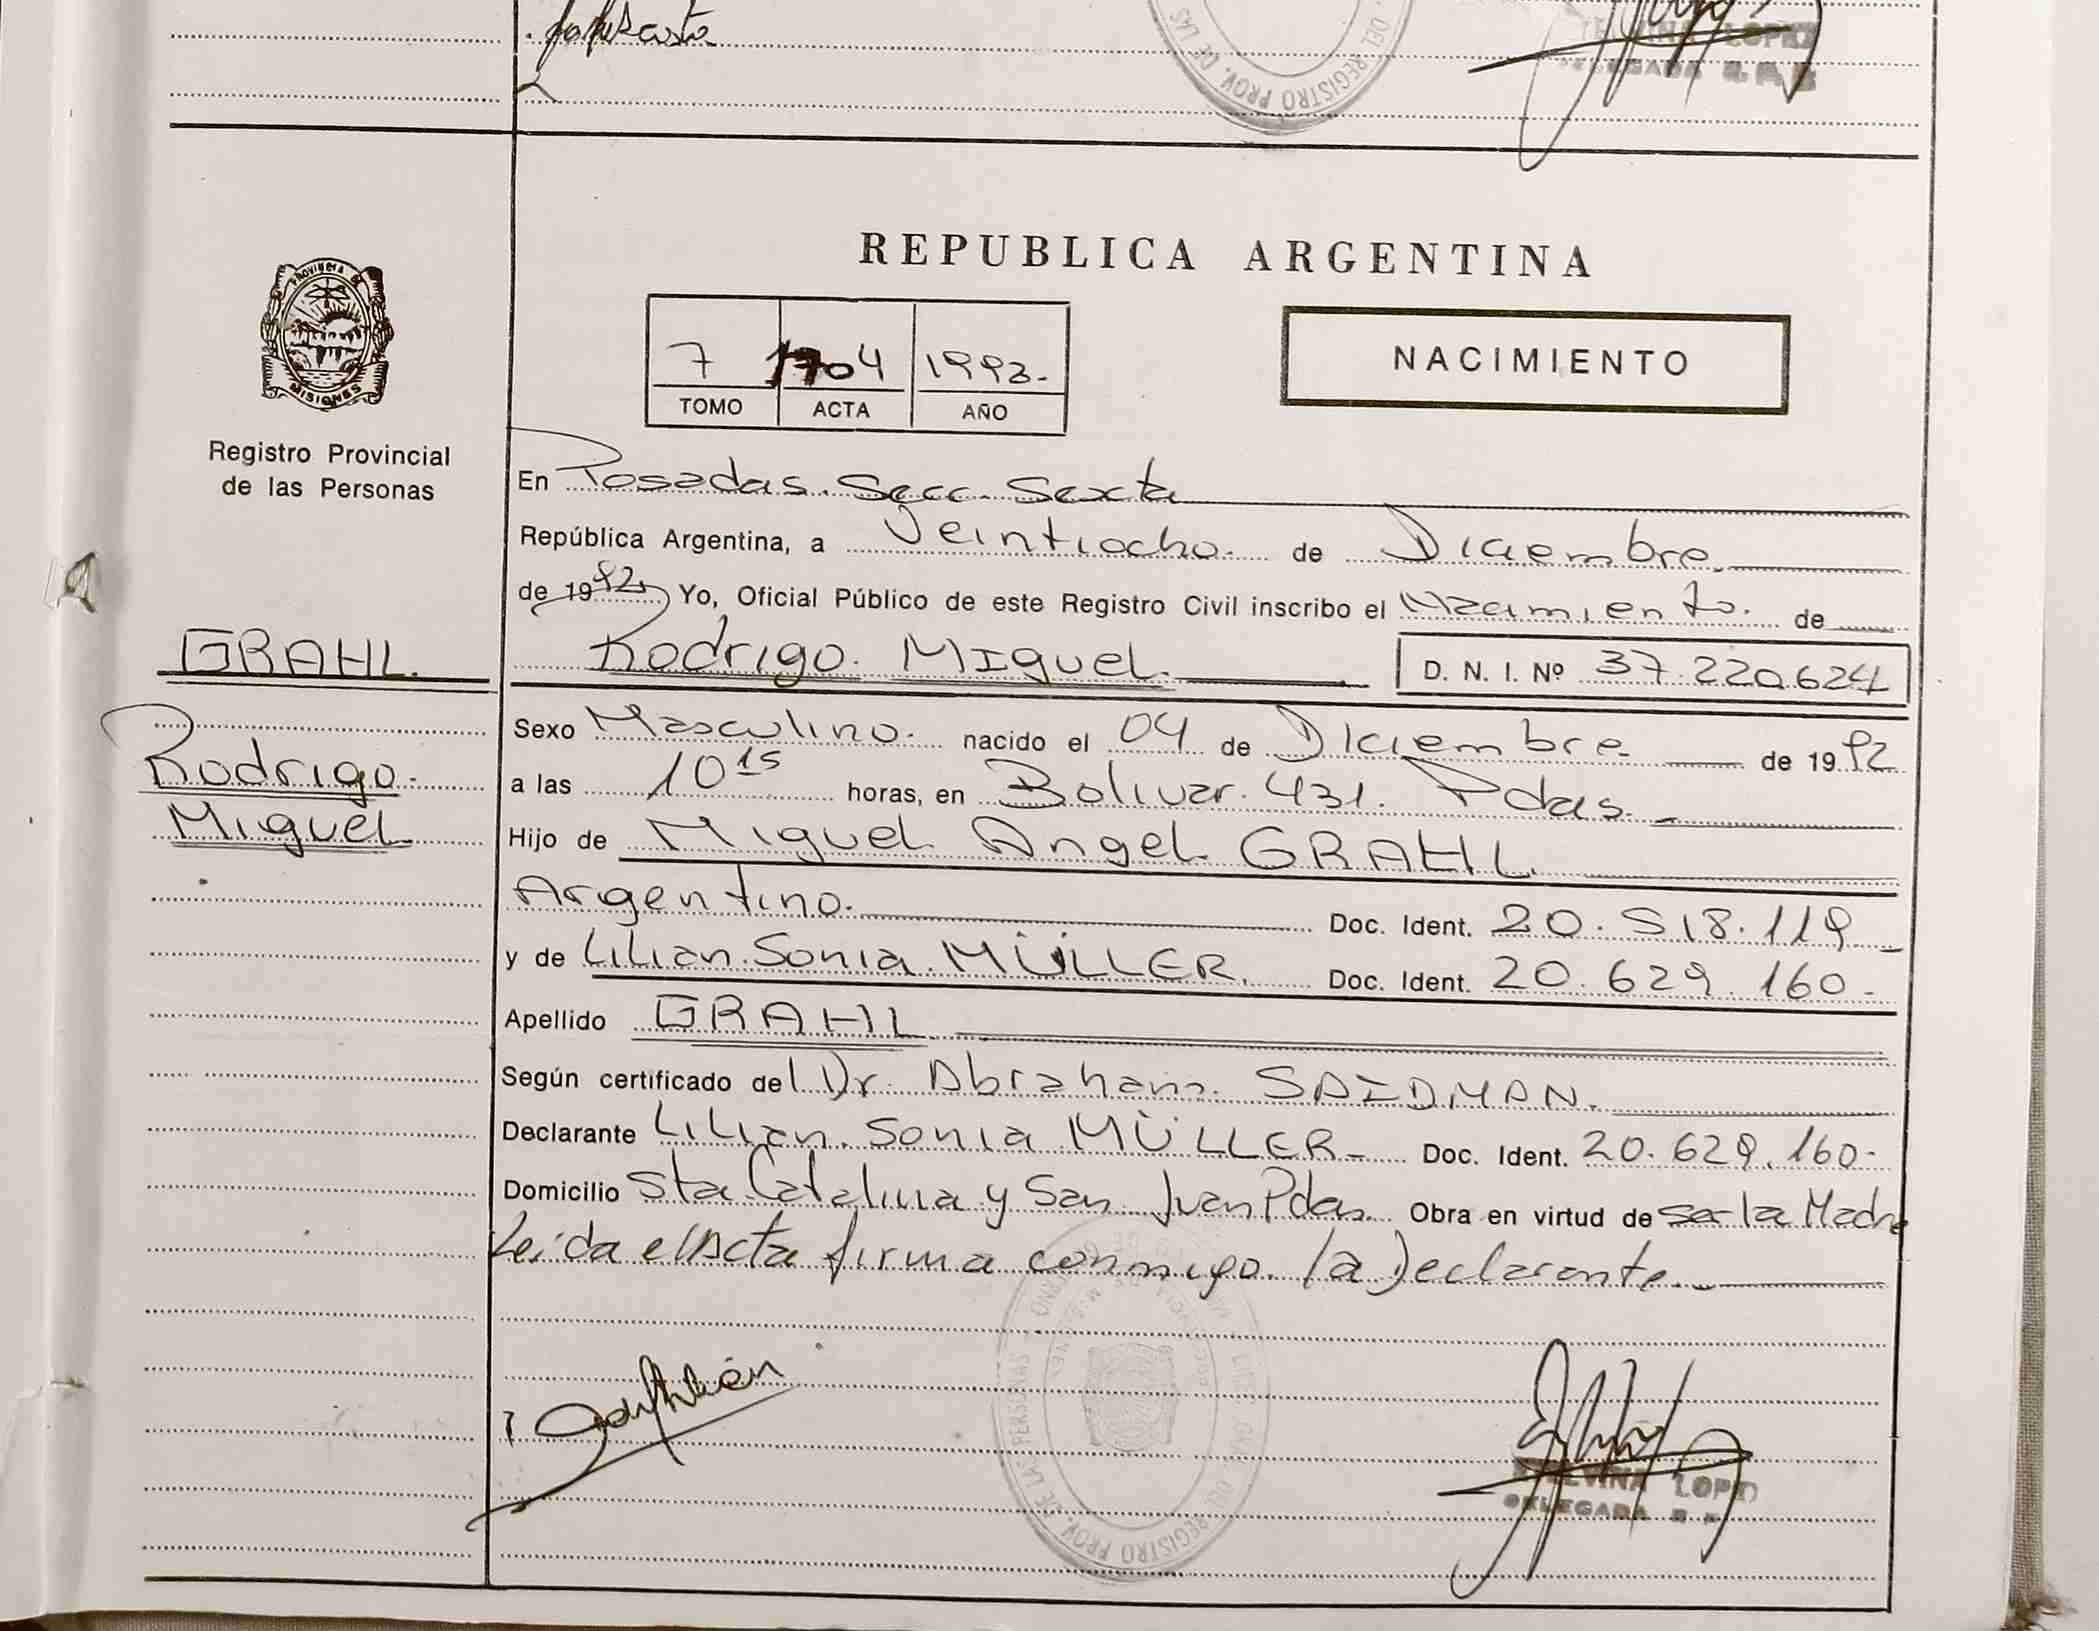 DEL REGISTRO PROV. DE LAS
LOPEZ
DELEGADA
REPUBLICA ARGENTINA
PROVINCIA DE
MISIONES
Registro Provincial
de las Personas
7 1704 1992.
TOMO ACTA AÑO
NACIMIENTO
En Posadas. Secc. Sexta
República Argentina, a Veintiocho. de Diciembre.
de 1992 Yo, Oficial Público de este Registro Civil inscribo el Nacimiento. de
GRAHL.
Rodrigo. Miguel. D. N. I. Nº 37.220.624
Rodrigo.
Miguel
Sexo Masculino. nacido el 04 de Diciembre de 1992
a las 10 15 horas, en Bolivar. 431. Pdas.
Hijo de Miguel Angel GRAHL
Argentino. Doc. Ident. 20.518.119
y de Lilian. Sonia. MÜLLER. Doc. Ident. 20.629.160.
Apellido GRAHL
Según certificado del Dr. Abraham. SAIDMAN.
Declarante Lilian. Sonia MÜLLER Doc. Ident. 20.629.160.
Domicilio Sta. Catalina y San Juan Pdas. Obra en virtud de ser la Madre
Leída el Acta firma conmigo la Declarante.
DEL REGISTRO PROV. DE LAS PERSONAS
LOPEZ
DELEGADA